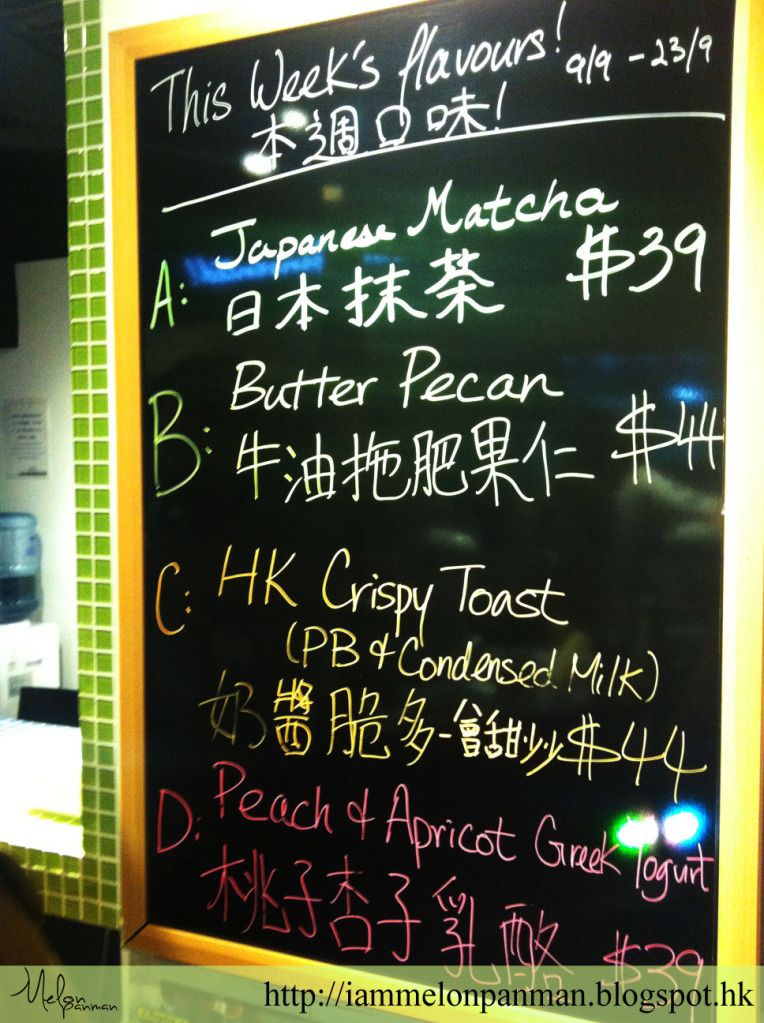 This Week's flavours! 9/9 - 23/9
本週口味!
Japanese Matcha
A: 日本抹茶 $39
Butter Pecan
B: 牛油拖肥果仁 $44
C: HK Crispy Toast
(PB & Condensed Milk)
奶醬脆多 $44
D: Peach & Apricot Greek Yogurt
桃子杏子乳酪 $39
Melon Panman
http://iammelonpanman.blogspot.hk